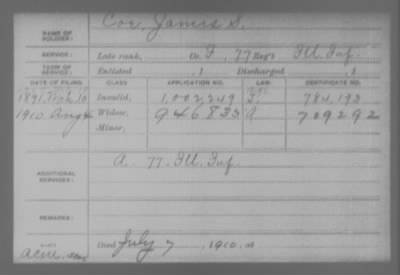 NAME OF SOLDIER: Cox, James S.
SERVICE: Late rank, Co. F, 77 Reg't Ill. Inf.
TERM OF SERVICE: Enlisted , 1 Discharged , 1
DATE OF FILING. CLASS APPLICATION NO. LAW. CERTIFICATE NO.
1891, 10 Invalid, 1,002,249 784,193
1910 Aug 4 Widow, 946833 709292
Minor,
ADDITIONAL SERVICES: A. 77. Ill. Inf.
REMARKS:
Died July 7, 1910, at